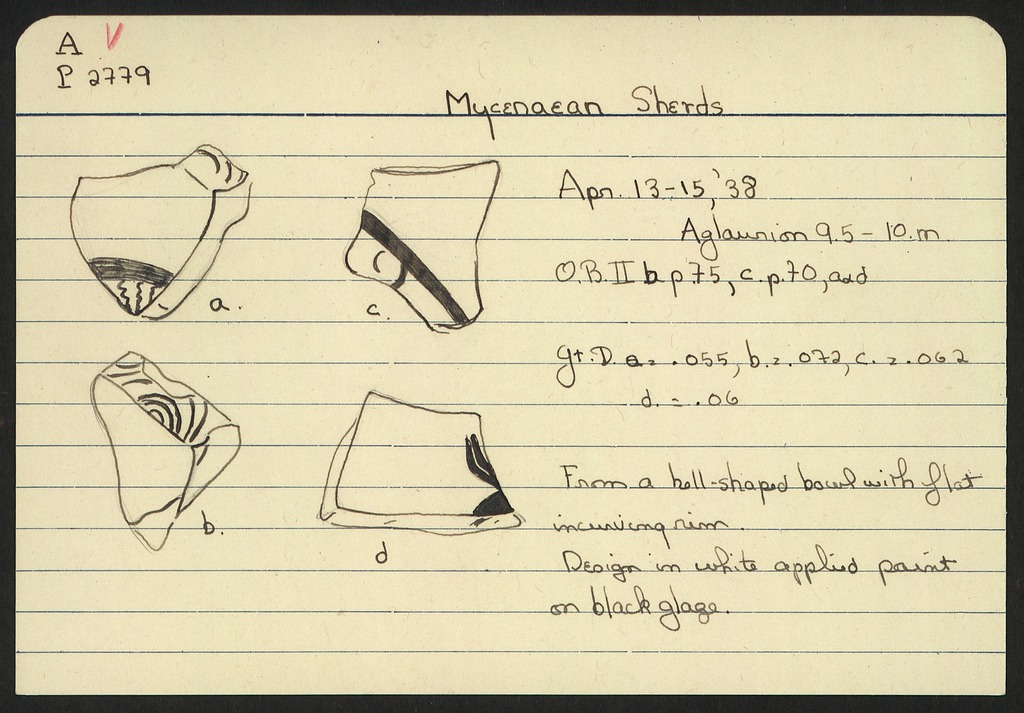 A V
P 2779
Mycenaean Sherds
Apr. 13-15, '38
Aglaurion 9.5 - 10.m.
O.B.II b p.75, c.p.70, and
gt. D. a = .055, b. = .072, c. = .062
d. = .06
From a bell-shaped bowl with flat
incurving rim.
Design in white applied paint
on black glaze.
a.
c.
b.
d